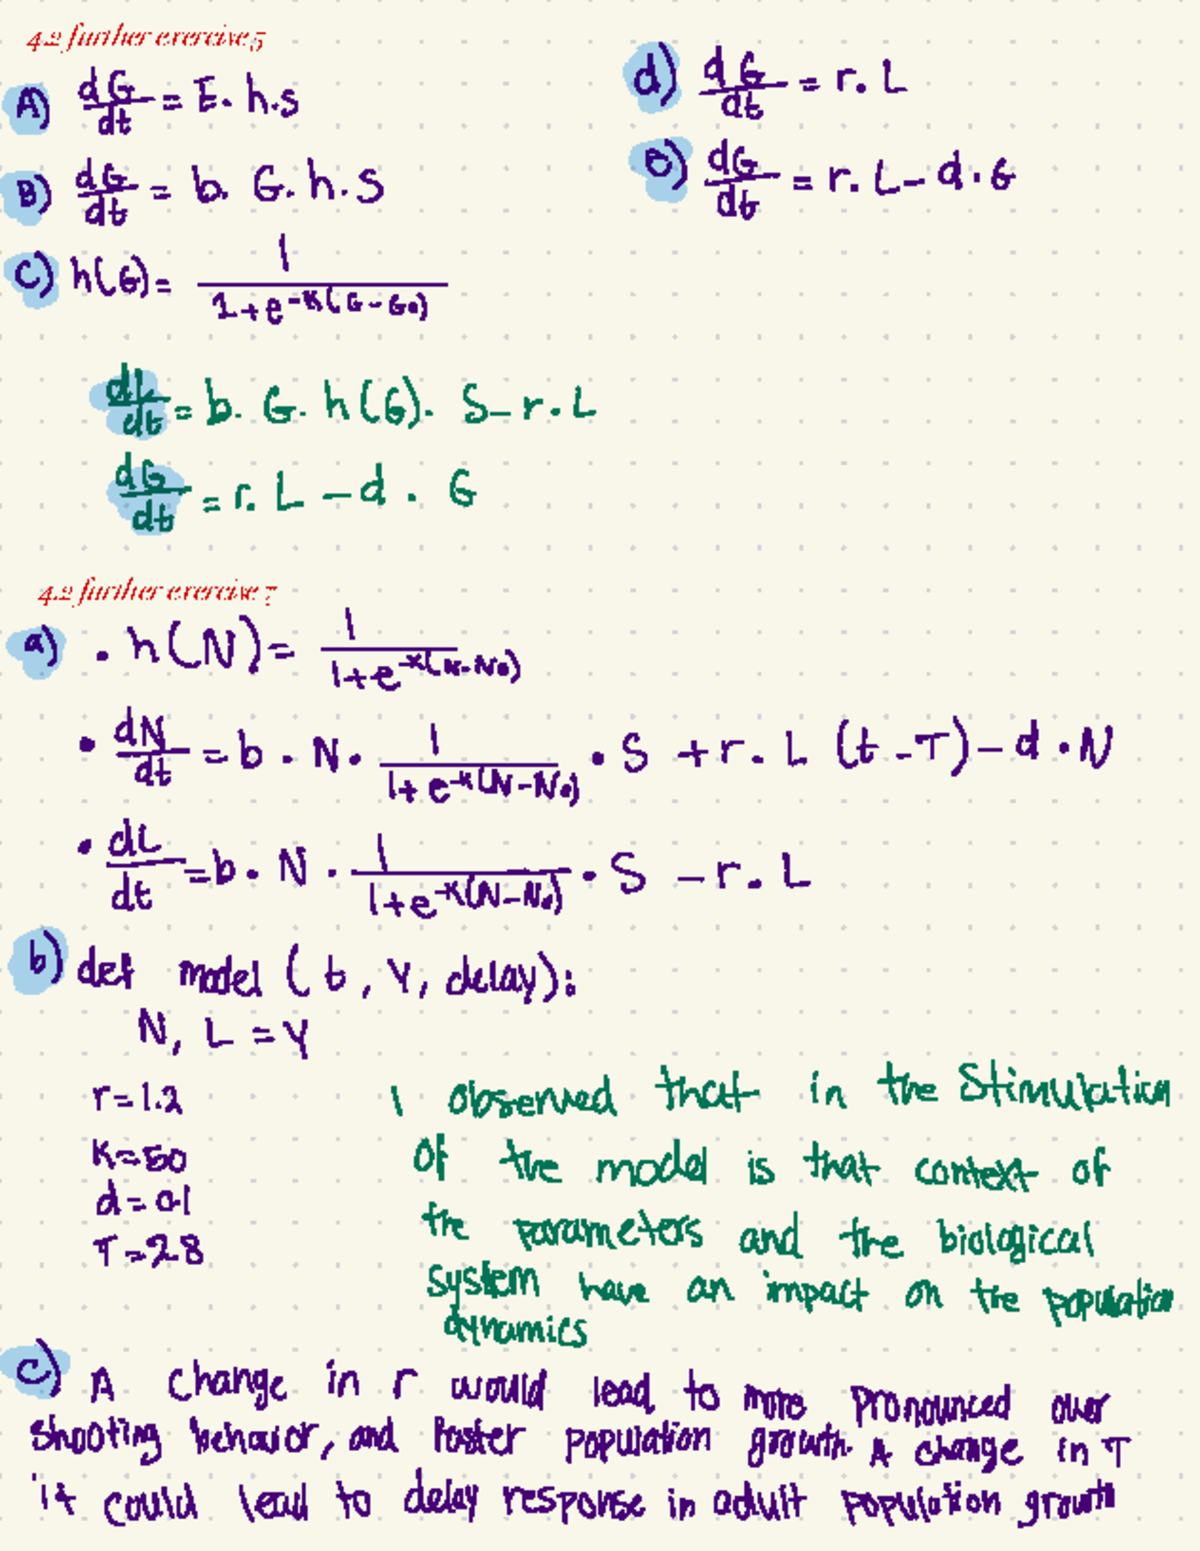 4.2 further exercise 5
A) dG/dt = E. h.s
B) dG/dt = b. G. h. s
C) h(G) = 1/(1+e^-K(G-G0))
dL/dt = b. G. h(G). S - r. L
dG/dt = r. L - d . G
d) dG/dt = r. L
e) dG/dt = r. L - d . G
4.2 further exercise 7
a) • h(N) = 1/(1+e^-K(N-N0))
• dN/dt = b . N . 1/(1+e^-K(N-N0)) • S + r. L (t-T) - d . N
• dL/dt = b . N . 1/(1+e^-K(N-N0)) • S - r. L
b) def model (t, Y, delay):
N, L = Y
r=1.2
K=50
d=0.1
T=28
I observed that in the Stimulation
of the model is that context of
the parameters and the biological
system have an impact on the population
dynamics
c) A change in r would lead to more pronounced over
shooting behavior, and faster population growth. A change in T
it could lead to delay response in adult population growth